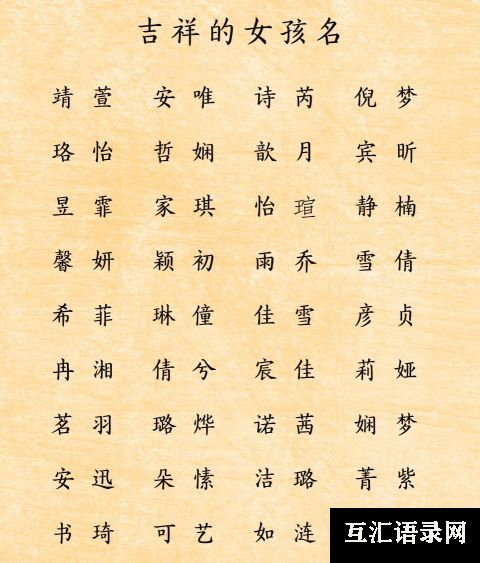 吉祥的女孩名
靖萱 安唯 诗芮 倪梦
珞怡 哲娴 歆月 宾昕
昱霏 家琪 怡瑄 静楠
馨妍 颖初 雨乔 雪倩
希菲 琳僮 佳雪 彦贞
冉湘 倩兮 宸佳 莉娅
茗羽 璐烨 诺茜 娴梦
安迅 朵愫 洁璐 菁紫
书琦 可艺 如涟
互汇语录网